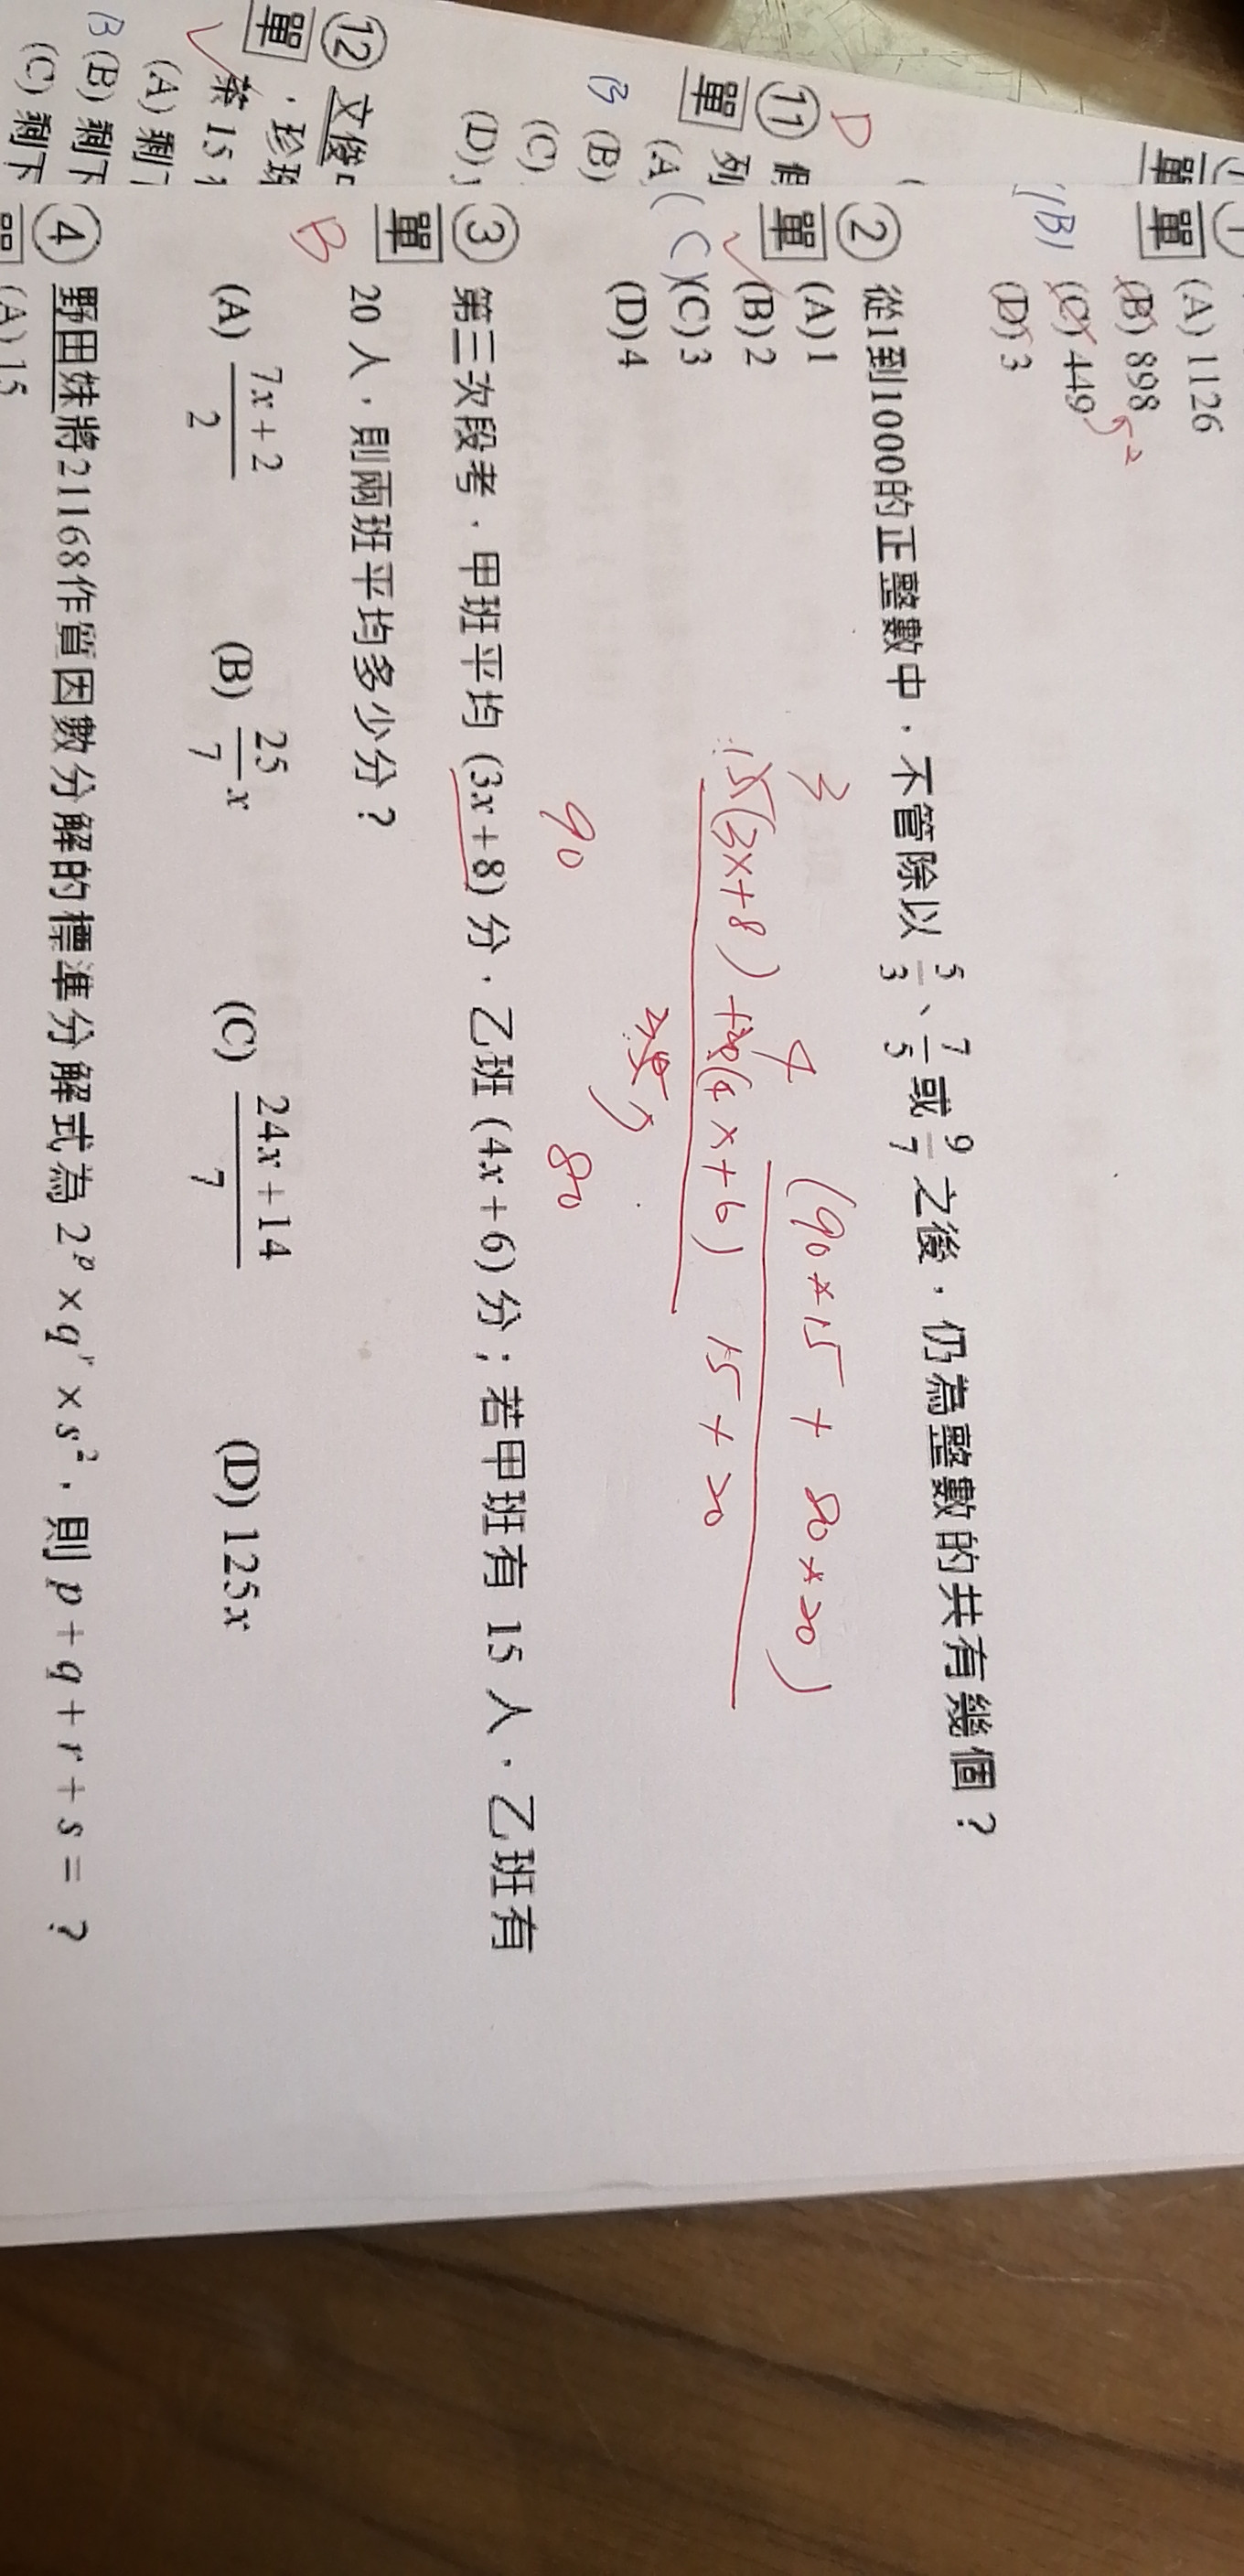 單
(A) 1126
(B) 898
(C) 449
(D) 3
(B)
② 從1到1000的正整數中，不管除以 5/3、7/5 或 9/7 之後，仍為整數的共有幾個？
單 (A) 1
(B) 2
(C) (C) 3
(D) 4
3 4 (90×15 + 80×20)
15(3x+8) + 20(4x+6) 15 + 20
90 80
③ 第三次段考，甲班平均 (3x+8) 分，乙班 (4x+6) 分；若甲班有 15 人，乙班有
單 20 人，則兩班平均多少分？
B
(A) 7x+2/2 (B) 25/7 x (C) 24x+14/7 (D) 125x
④ 野田妹將21168作質因數分解的標準分解式為 2^p × q^r × s^2，則 p + q + r + s = ？
單 (A) 15
D
⑪
單 列
(A
B (B)
(C)
(D)
⑫ 文俊
單
第 15
(A) 剩
B (B) 剩下
(C) 剩下